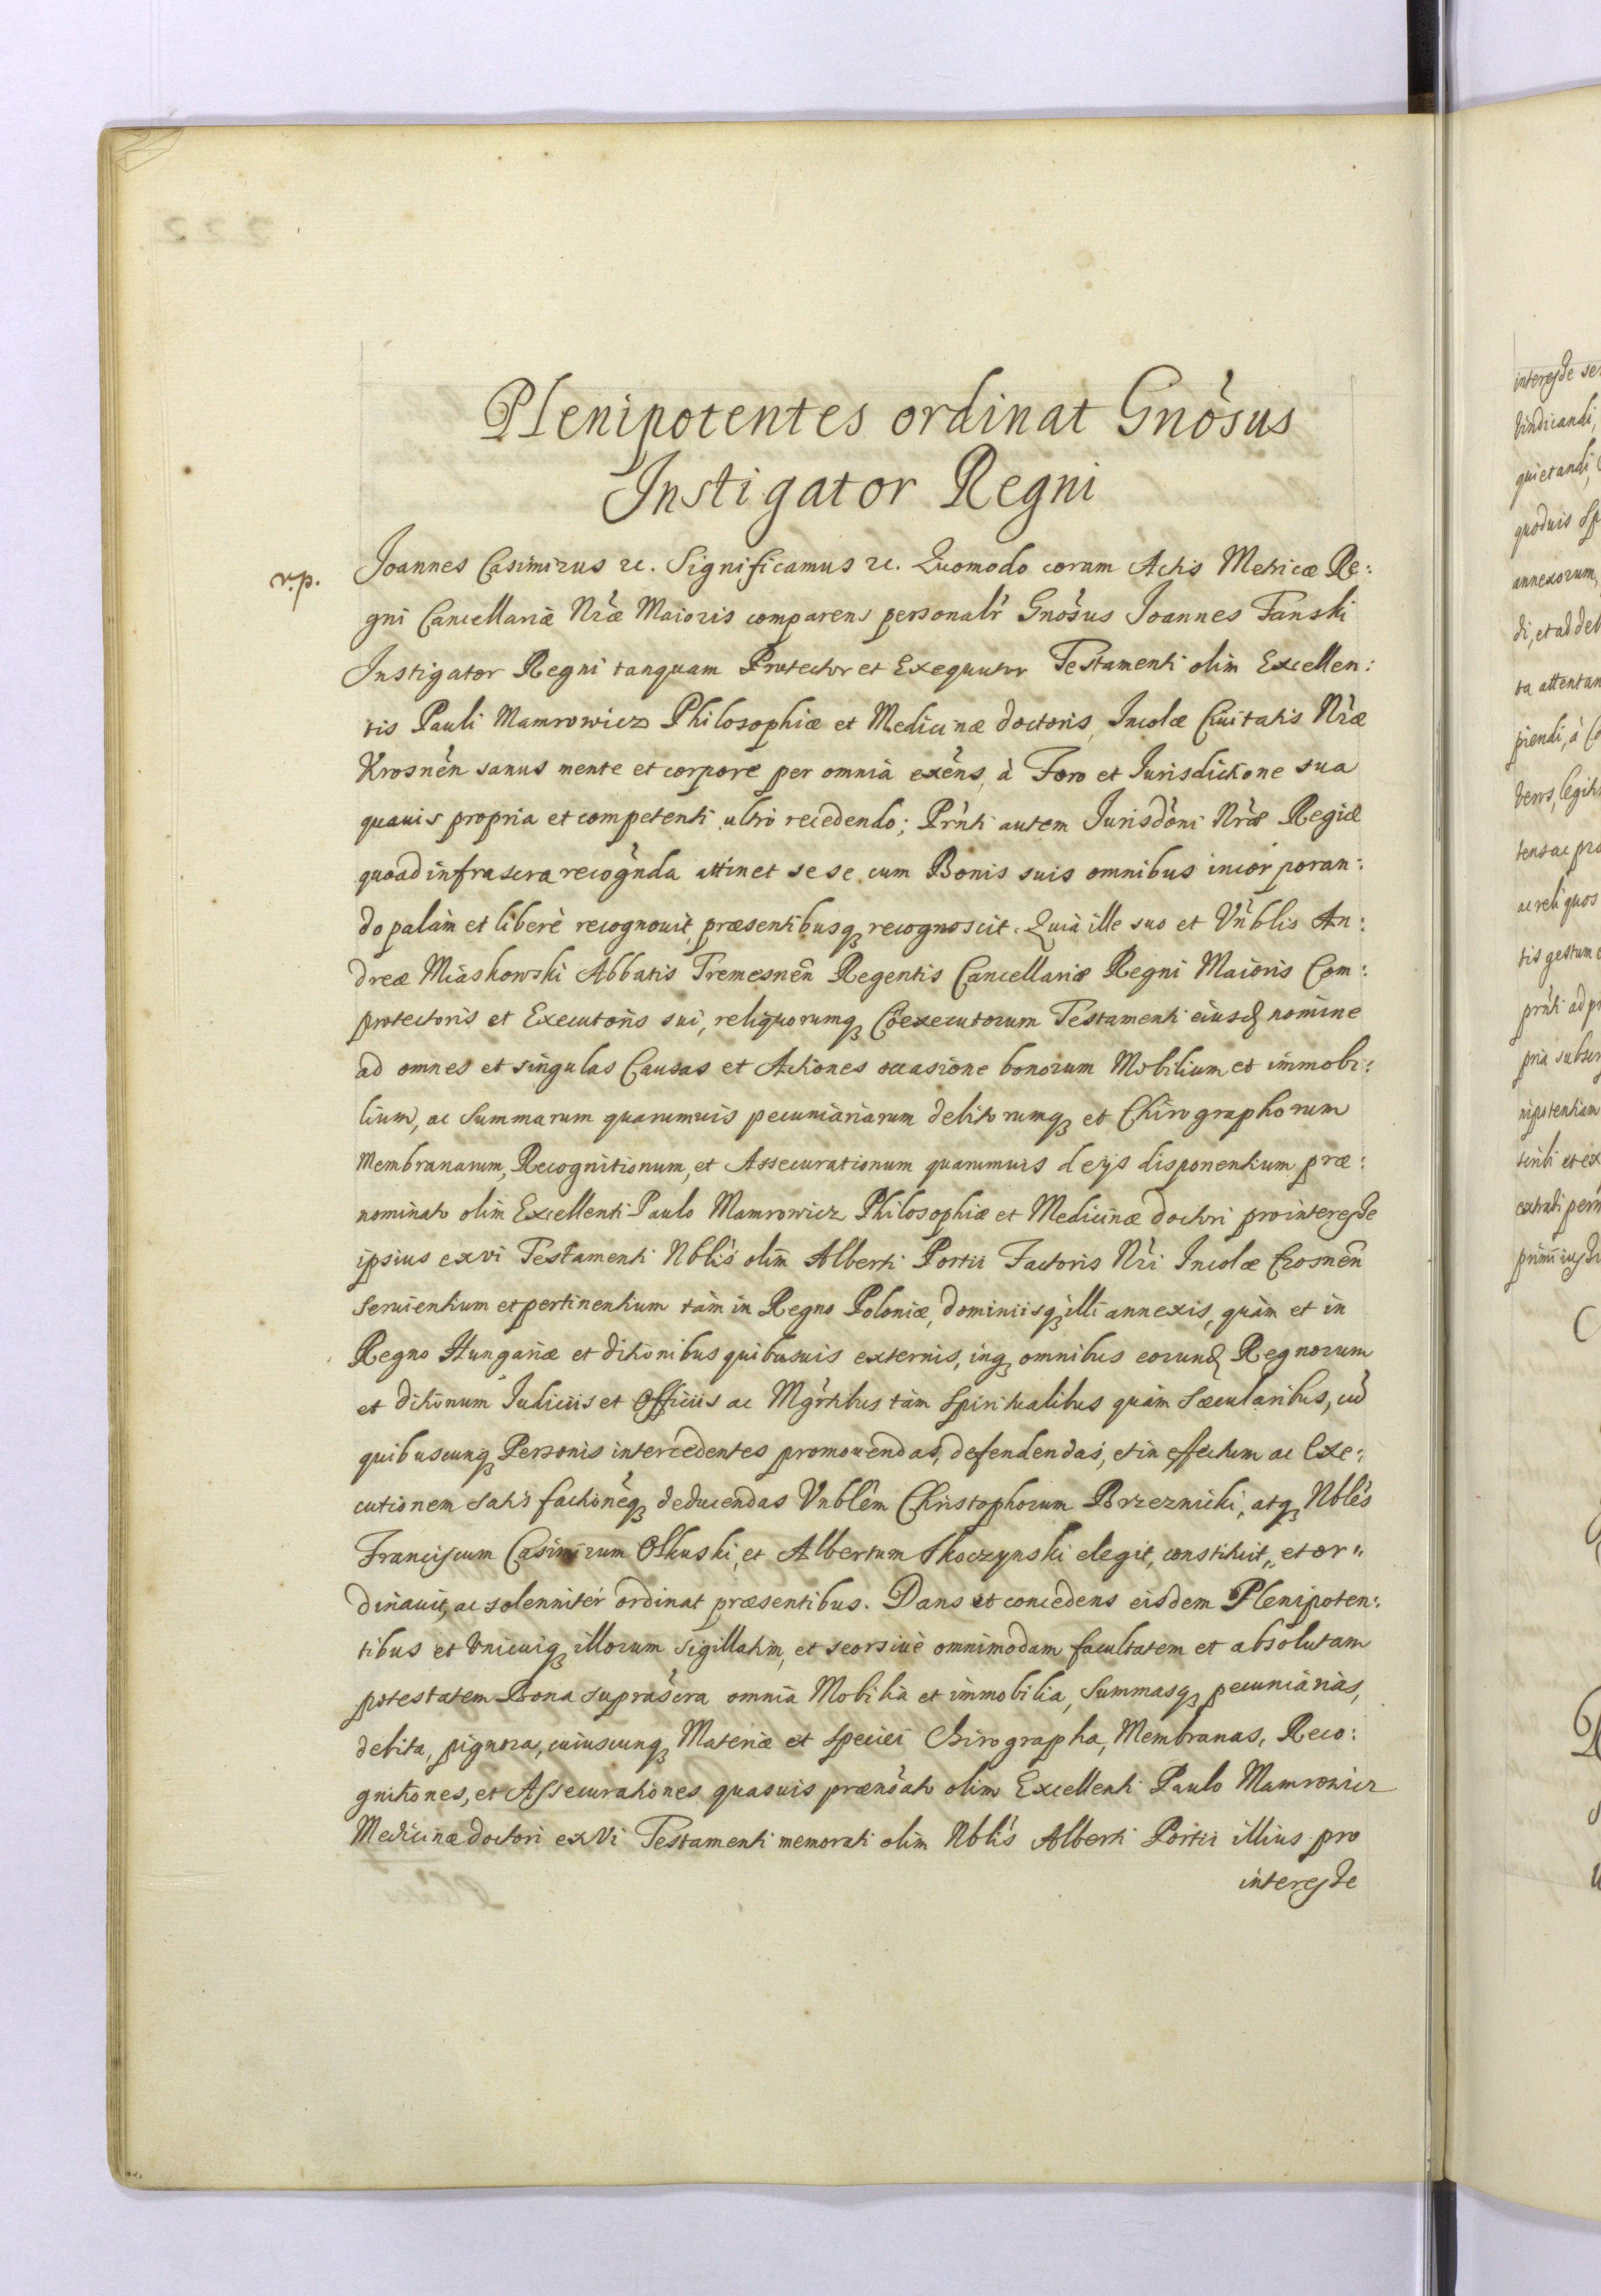 Plenipotentes ordinat Gnōsus
Instigator Regni
v.p.
Joannes Casimirus etc. Significamus etc. Quomodo coram Actis Metricæ Re:
gni Cancellariæ Nr̃æ Maioris comparens personalr̃ Gnōsus Joannes Tanski
Instigator Regni tanquam Protector et Exequutor Testamenti olim Excellen:
tis Pauli Mamrowicz Philosophiæ et Medicinæ doctoris, Incolæ Ciuitatis Nr̃æ
Krosnēn sanus mente et corpore per omnia exēns, à Foro et Jurisdictione sua
quauis propria et competenti ultrò recedendo; Prñti autem Jurisdōni Nr̃æ Regiæ
quoad infrascra recognda attinet sese cum Bonis suis omnibus incorporan:
do palàm et liberè recognouit, præsentibusq; recognoscit. Quia ille suo et Vñblis An:
dreæ Miaskowski Abbatis Tremesnēn Regentis Cancellariæ Regni Maioris Com:
protectoris et Executoris sui, reliquorumq; Coexecutorum Testamenti eiusd nomine
ad omnes et singulas Causas et Actiones occasione bonorum Mobilium et immobi:
lium, ac Summarum quarumuis pecuniariarum debitorumq; et Chirographorum
Membranarum, Recognitionum, et Assecurationum quarumuis de ijs disponentium præ:
nominato olim Excellenti Paulo Mamrowicz Philosophiæ et Medicinæ doctori pro interesse
ipsius ex vi Testamenti Nblis olim Alberti Portii Factoris Nr̃i Incolæ Crosnēn
seruientium et pertinentium tàm in Regno Poloniæ, dominiisq; illi annexis, quàm et in
Regno Hungariæ et ditionibus quibusuis externis, inq; omnibus eorund Regnorum
et ditionum Judiciis et Officiis ac Mgr̃tibus tàm Spiritualibus quàm Sæcularibus, cū
quibuscunq; Personis intercedentes promouendas, defendendas, et in effectum ac Exe:
cutionem satis factionēq; deducendas Vnblēm Christophorum Brzeznicki, atq; Nblēs
Franciscum Casimirum Olkuski, et Albertum Skoczynski elegit, constituit, et or„
dinauit, ac solenniter ordinat præsentibus. Dans et concedens eisdem Plenipoten:
tibus et Vnicuiq; illorum sigillatim, et seorsiuè omnimodam facultatem et absolutam
potestatem Bona suprascra omnia Mobilia et immobilia, Summasq; pecuniarias,
debita, pignora, cuiuscunq; Materiæ et speciei Chirographa, Membranas, Reco:
gnitiones, et Assecurationes quasuis prænōato olim Excellenti Paulo Mamrowicz
Medicinæ doctori ex Vi Testamenti memorati olim Nblis Alberti Portii illius pro
interesse